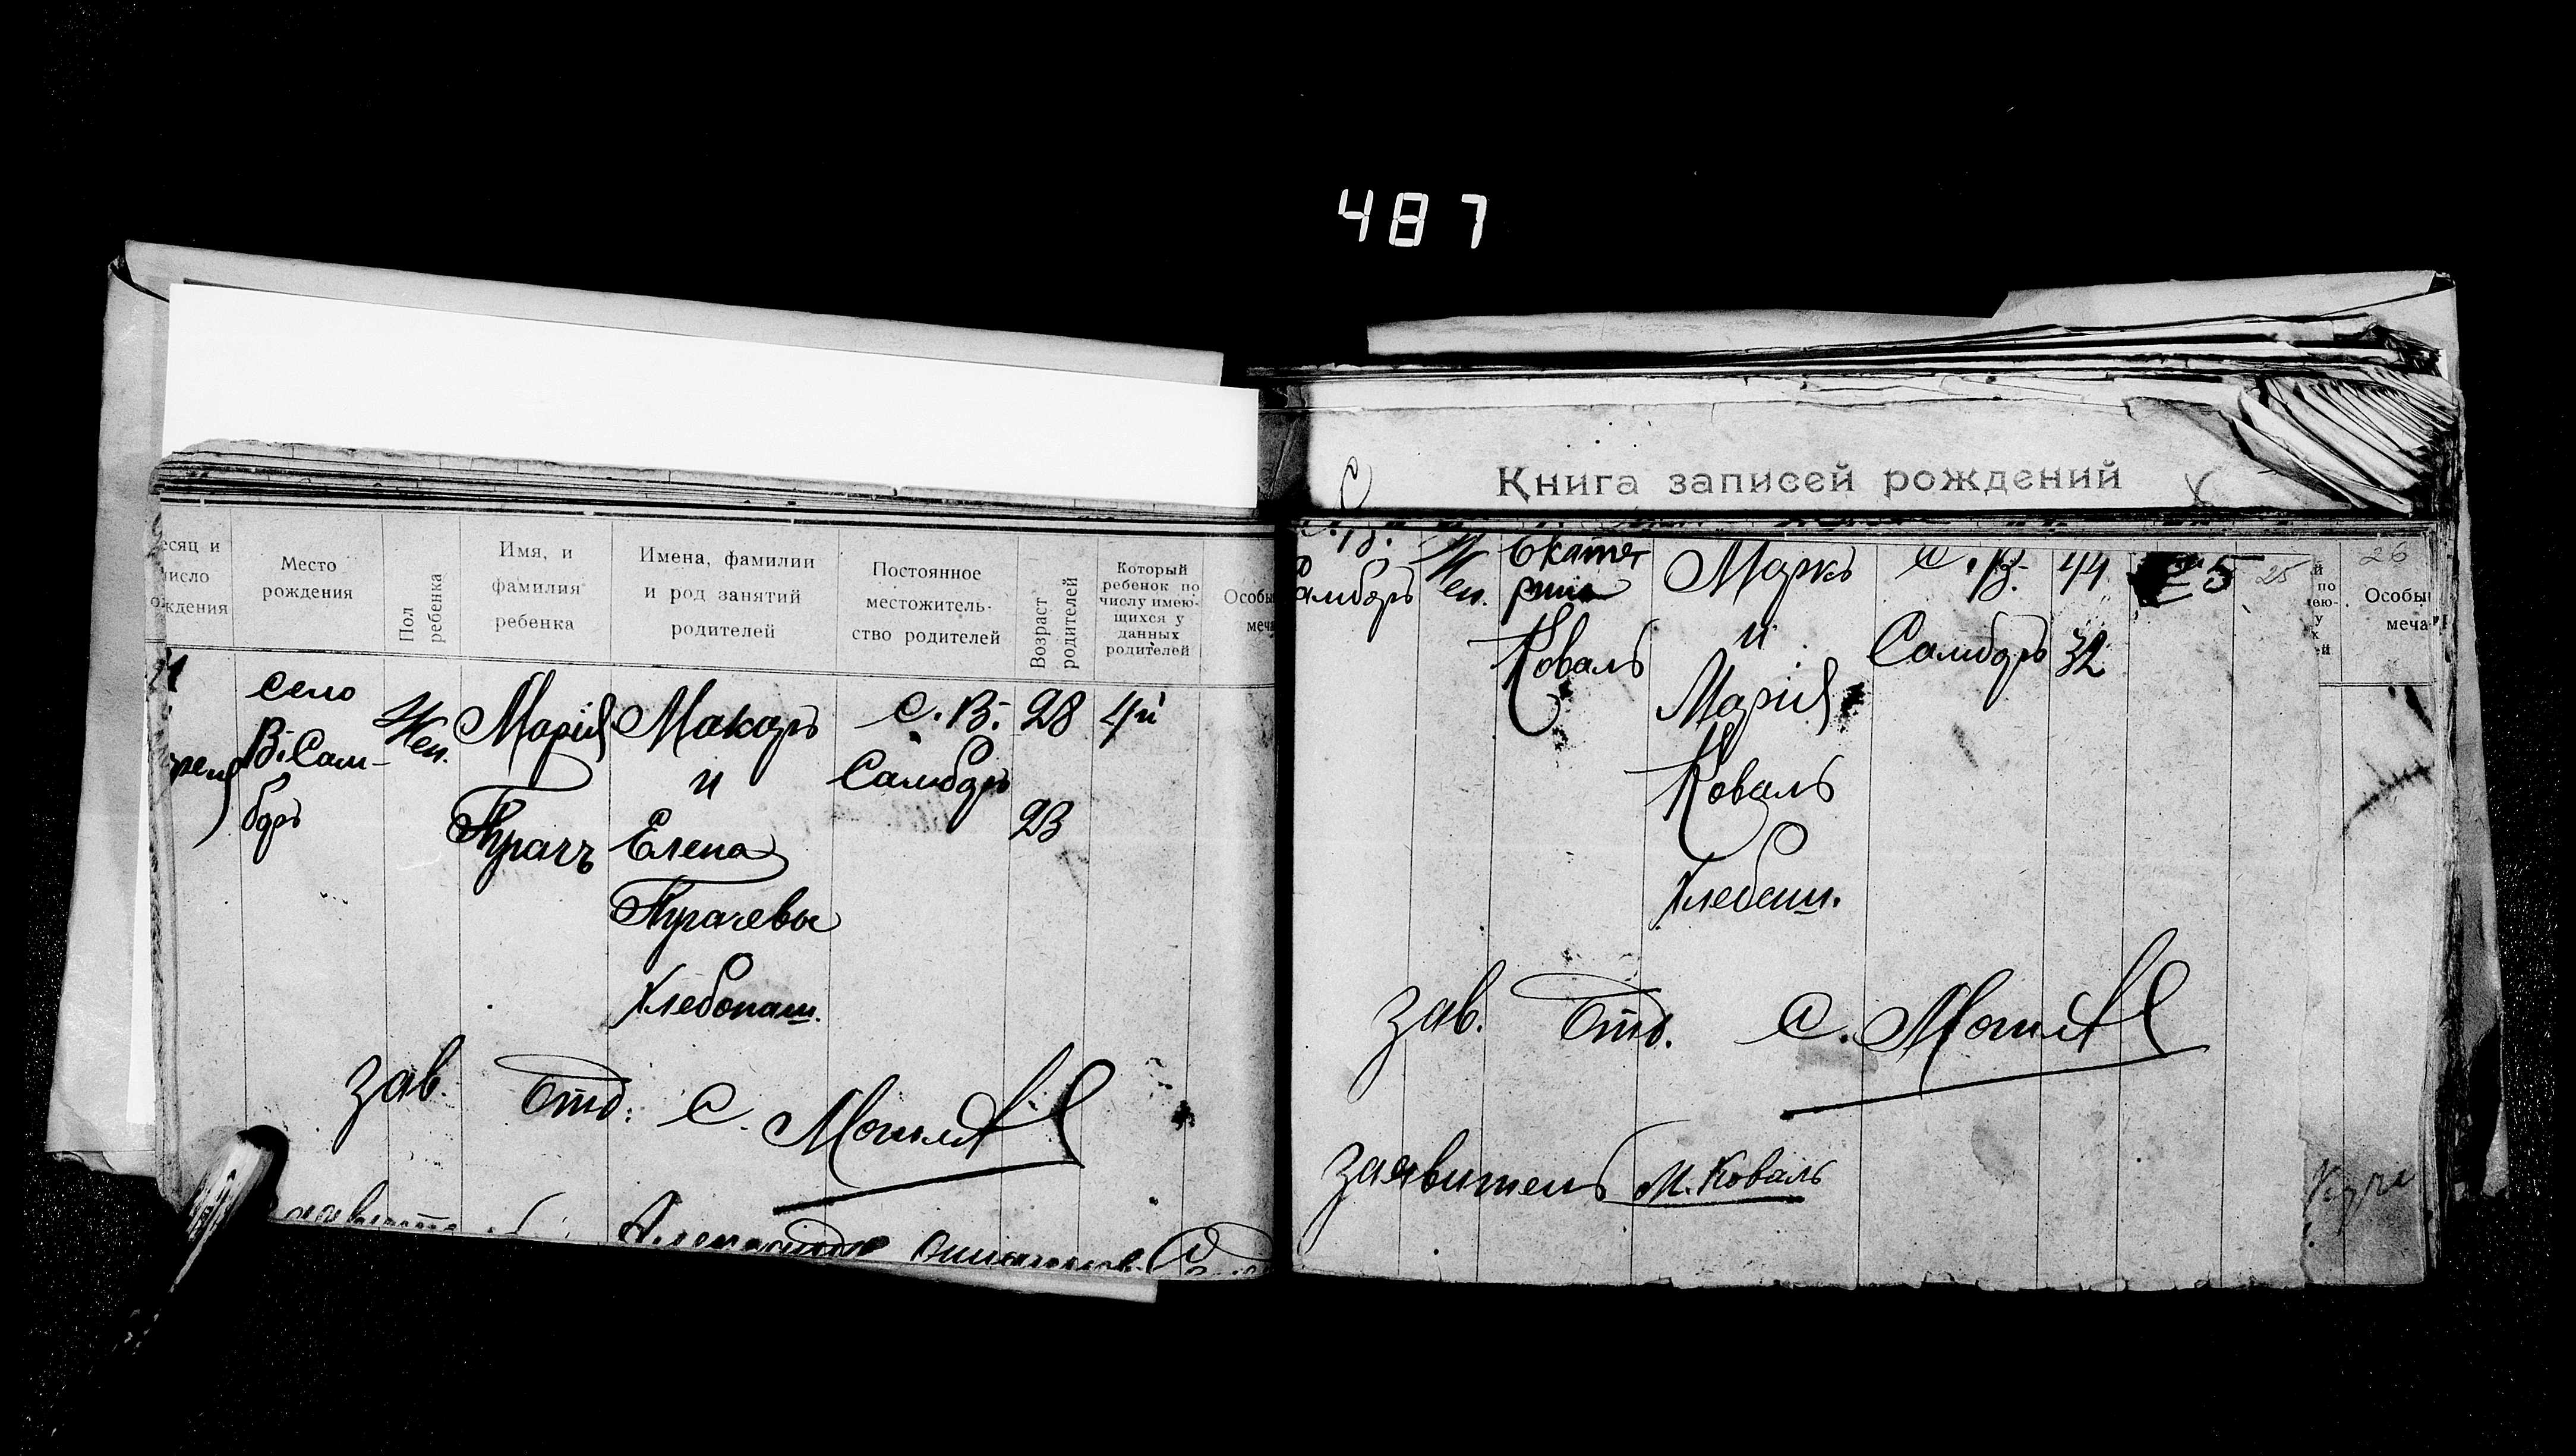 487
есяц и
число
ждения
Место
рождения
Пол
ребенка
Имя, и
фамилия
ребенка
Имена, фамилии
и род занятий
родителей
Постоянное
местожитель-
ство родителей
Возраст
родителей
Который
ребенок по
числу имею-
щихся у
данных
родителей
Особы
меча
село
В. Сам-
боръ
Жен.
Марія
Макаръ
и
Елена
Хлебопаш.
С. В.
Самборъ
28
23
4й
Зав. Отд. С.
Книга записей рождений
С. В.
Самборъ
Жен.
Екате
рина
Коваль
Маркъ
и
Марія
Коваль
Хлебоп.
С. В.
Самборъ
44
32
5
25
26
й
по
ею-
у
х
ей
Особы
меча
Зав. Отд. С.
Заявитель М. Коваль